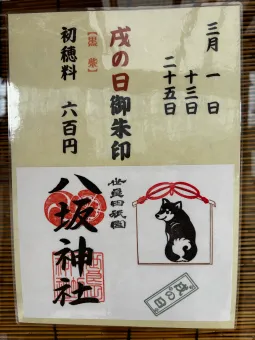 三月 一日
十三日
二十五日
戌の日御朱印
【黒紫】
初穂料 六百円
世良田祇園
八坂神社
戌の日